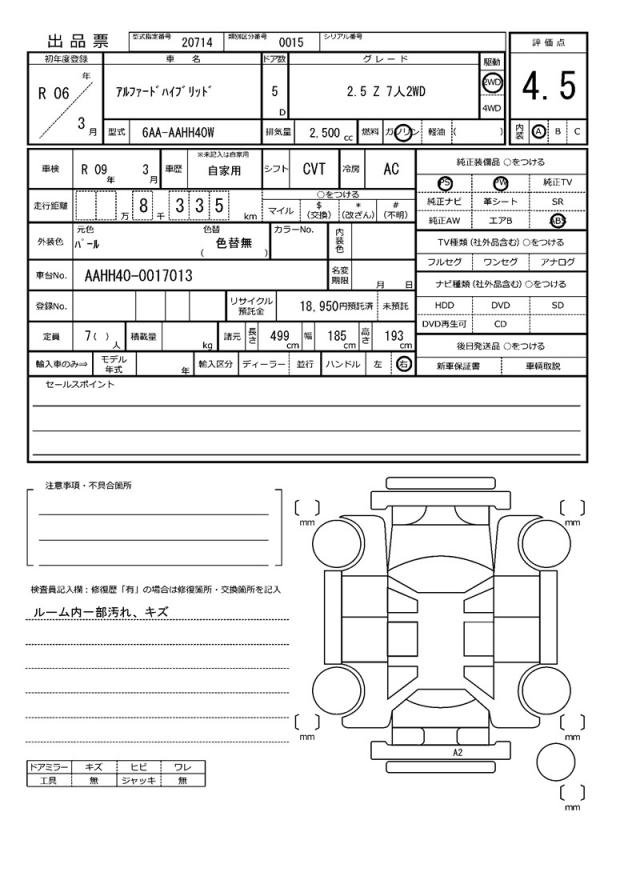 出品票 型式指定番号 20714 類別区分番号 0015 シリアル番号
評価点
4.5
内装 A B C
初年度登録 車名 ドア数 グレード 駆動
R 06 年 3 月 アルファードハイブリッド 5 D 2.5 Z 7人2WD 2WD 4WD
型式 6AA-AAHH40W 排気量 2,500 cc 燃料 ガソリン 軽油 ( )
車検 R 09 年 3 月 車歴 ※未記入は自家用 自家用 シフト CVT 冷房 AC
走行距離 万 8 千 3 3 5 km ○をつける
マイル $ (交換) * (改ざん) # (不明)
外装色 元色 パール 色替 色替無 ( ) カラーNo. 内装色
車台No. AAHH40-0017013 名変期限 月 日
登録No. リサイクル預託金 18,950円預託済 未預託
定員 7( ) 人 積載量 kg 諸元 長さ 499 cm 幅 185 cm 高さ 193 cm
輸入車のみ⇒ モデル年式 年 輸入区分 ディーラー 並行 ハンドル 左 右
純正装備品 ○をつける
PS PW 純正TV
純正ナビ 革シート SR
純正AW エアB ABS
TV種類(社外品含む) ○をつける
フルセグ ワンセグ アナログ
ナビ種類(社外品含む) ○をつける
HDD DVD SD
DVD再生可 CD
後日発送品 ○をつける
新車保証書 車輌取説
セールスポイント
注意事項・不具合箇所
検査員記入欄：修復歴「有」の場合は修復箇所・交換箇所を記入
ルーム内一部汚れ、キズ
ドアミラー キズ ヒビ ワレ
工具 無 ジャッキ 無
mm
mm
mm
mm
A2
mm